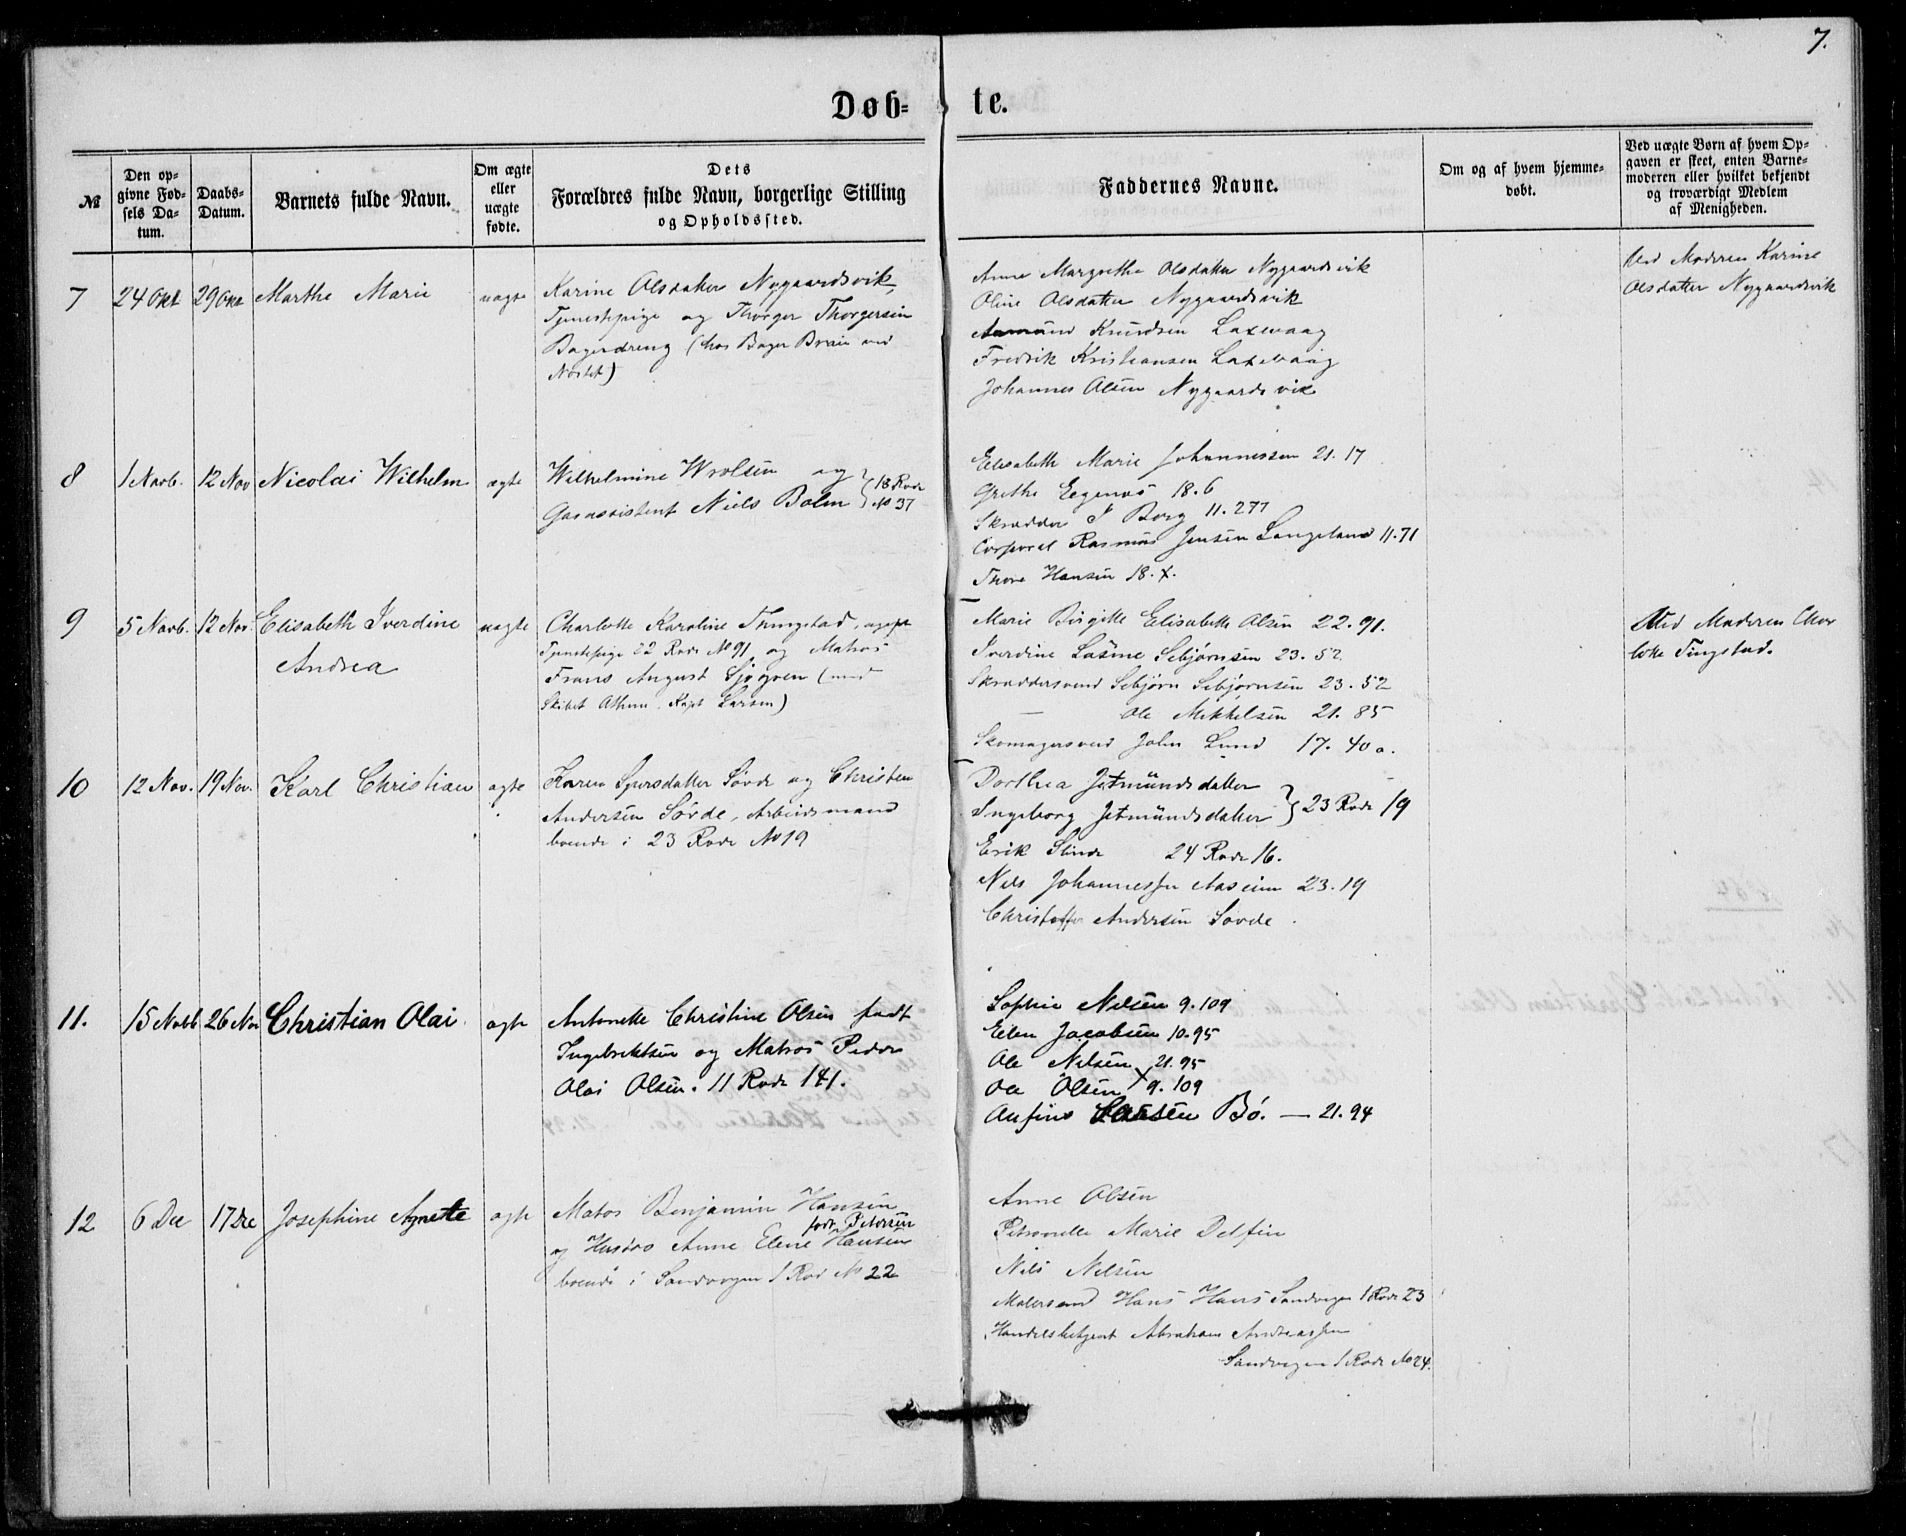 7.
Døb- te.
№
Den op-
givne Fød-
sels Da-
tum.
Daabs-
Datum.
Barnets fulde Navn.
Om ægte
eller
uægte
fødte.
Dets
Forældres fulde Navn, borgerlige Stilling
og Opholdssted.
Faddernes Navne.
Om og af hvem hjemme-
døbt.
Ved uægte Børn af hvem Op-
gaven er skeet, enten Barne-
moderen eller hvilket bekjendt
og troværdigt Medlem
af Menigheden.
7
24 Okt
29 Okt
Marthe Marie
uægte
Karine Olsdatter Nygaardsvik,
Tjenestepige og Thorger Thorgersen
Bagerdreng (hos Bager Brain ved
Nøstet)
Anne Margrethe Olsdatter Nygaardsvik
Oline Olsdatter Nygaardsvik
Aamund Knudsen Laxevaag
Fredrik Kristiansen Laxevaag
Johannes Olsen Nygaardsvik
Ved Moderen Karine
Olsdatter Nygaardsvik
8
1 Novb.
12 Nov
Nicolai Wilhelm
ægte
Wilhelmine Wrolsen og
Gasassistent Niels Bolm
18 Rode
№ 37
Elisabeth Marie Johannessen 21. 17
Grethe Eegenæs 18. 6
Skrædder I Borg 11. 277
Corporal Rasmus Jensen Langeland 11. 71
Thore Hansen 18. X.
9
5 Novb.
12 Nov.
Elisabeth Iverdine
Andrea
uægte
Charlotte Karoline Thingstad,
Tjenestepige 22 Rode № 91, og Matros
Frans August Sjögren (med
Skibet Athene, Kapt Larsen)
Marie Birgitte Elisabeth Olsen 22. 91.
Iverdine Lasine Sebjørnsen 23. 52.
Skræddersvend Sebjørn Sebjørnsen 23. 52
— Ole Mikkelsen 21. 85
Skomagersvend John Lund 17. 40 a.
Ved Moderen Char
lotte Tingstad.
10
12 Nov.
19 Nov.
Karl Christian
ægte
Karen Sjursdatter Søvde og Christen
Andersen Sövde, Arbeidsmand
boende i 23 Rode № 19
Dorthea Jetmundsdatter
Ingeborg Jetmundsdatter } 23 Rode 19
Erik Slinde 24 Rode 16.
Nils Johannessen Aaseim 23. 19
Christoffer Andersen Sövde
11.
15 Novb
26 Nov
Christian Olai
ægte
Antonette Christine Olsen født
Ingebrektsen og Matros Peder
Olai Olsen. 11 Rode 141.
Sophie Nilsen 9. 109
Elen Jacobsen 10. 95
Ole Nilsen 21. 95
Ole Olsen X 9. 109
Anfind Larsen Bö. — 21. 94
12
6 Dec
17 Dec
Josephine Agnete
ægte
Matros Benjamin Hansen
født Petersen
og Hustro Anne Elene Hansen
boende i Sandvigen 1 Rod № 22
Anne Olsen
Petronelle Marie Delfin
Nils Nilsen
Malersvend Hans Hans Sandvigen 1 Rode 23
Handelsbetjent Abraham Andreassen
Sandvigen 1 Rode № 24.